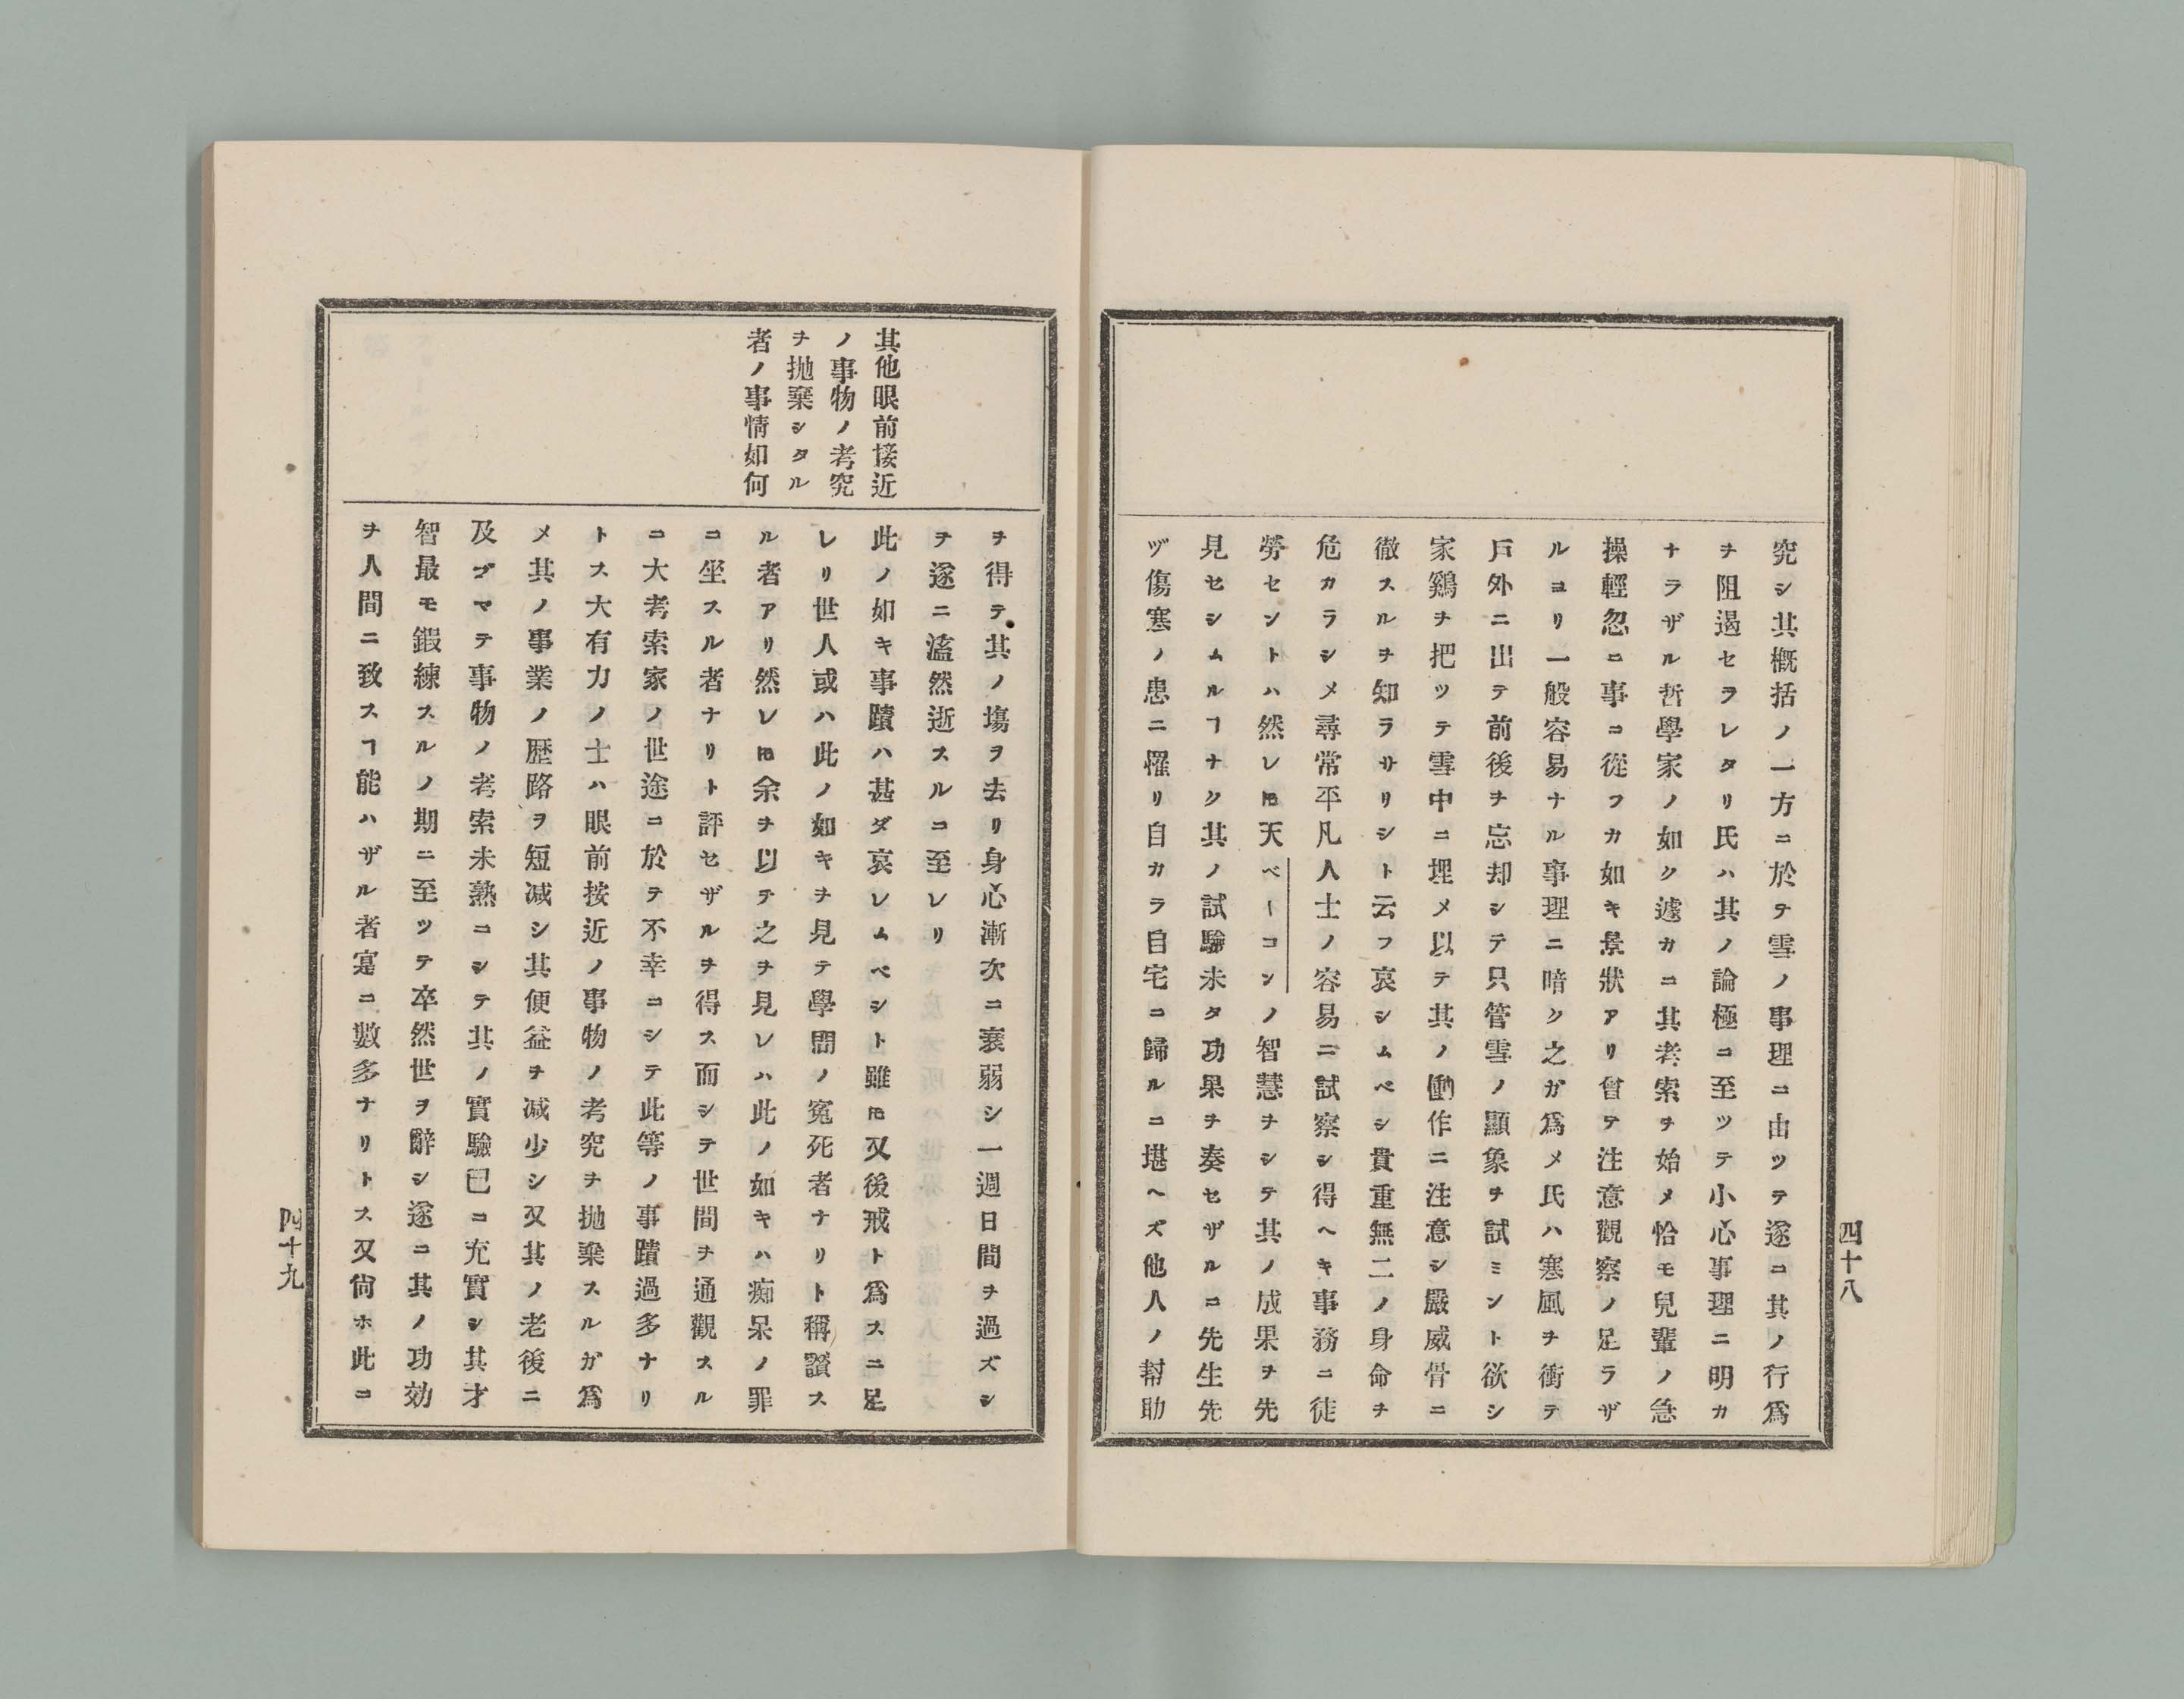 四十八
究シ其概括ノ一方ニ於テ雪ノ事理ニ由ツテ遂ニ其ノ行爲
ヲ阻遏セヲレタリ氏ハ其ノ論極ニ至ツテ小心事理ニ明カ
ナラザル哲學家ノ如ク遽カニ其考索ヲ始メ恰モ兒輩ノ急
操輕忽ニ事ニ從フカ如キ景狀アリ曾テ注意觀察ノ足ラザ
ルヨリ一般容易ナル事理ニ暗ク之ガ爲メ氏ハ寒風ヲ衝テ
戶外ニ出テ前後ヲ忘却シテ只管雪ノ顯象ヲ試ミント欲シ
家鷄ヲ把ツテ雪中ニ埋メ以テ其ノ働作ニ注意シ嚴威骨ニ
徹スルヲ知ラサリシト云フ哀シムベシ貴重無二ノ身命ヲ
危カラシメ尋常平凡人士ノ容易ニ試察シ得ヘキ事務ニ徒
勞セントハ然レ𪜈天ベーコンノ智慧ヲシテ其ノ成果ヲ先
見セシムルヿナク其ノ試驗未タ功果ヲ奏セザルニ先生先
ヅ傷寒ノ患ニ罹リ自カラ自宅ニ歸ルニ堪ヘズ他人ノ幇助
ヲ得テ其ノ塲ヲ去リ身心漸次ニ衰弱シ一週日間ヲ過ズシ
ヲ遂ニ溘然逝スルニ至レリ
其他眼前接近
ノ事物ノ考究
ヲ抛棄シタル
者ノ事情如何
此ノ如キ事蹟ハ甚ダ哀レムベシト雖𪜈又後戒ト爲スニ足
レリ世人或ハ此ノ如キヲ見テ學問ノ冤死者ナリト稱讃ス
ル者アリ然レ𪜈余ヲ以テ之ヲ見レハ此ノ如キハ痴呆ノ罪
ニ坐スル者ナリト評セザルヲ得ス而シテ世間ヲ通觀スル
ニ大考索家ノ世途ニ於テ不幸ニシテ此等ノ事蹟過多ナリ
トス大有力ノ士ハ眼前按近ノ事物ノ考究ヲ抛棄スルガ爲
メ其ノ事業ノ歴路ヲ短减シ其便益ヲ减少シ又其ノ老後ニ
及ブマテ事物ノ考索未熟ニシテ其ノ實驗已ニ充實シ其才
智最モ鍜練スルノ期ニ至ツテ卒然世ヲ辭シ遂ニ其ノ功効
ヲ人間ニ致スヿ能ハザル者寔ニ數多ナリトス又尙ホ此ニ
四十九